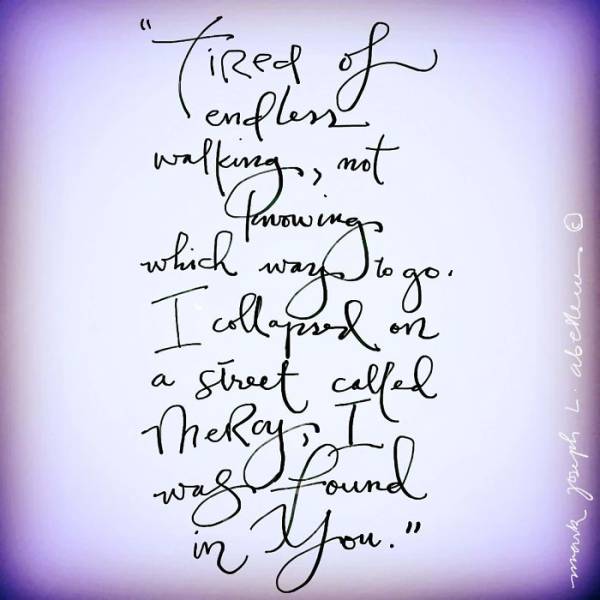 "Tired of
endless
walking, not
knowing
which way to go.
I collapsed on
a street called
Mercy, I
was found
in You."
mark joseph L. abellera ©